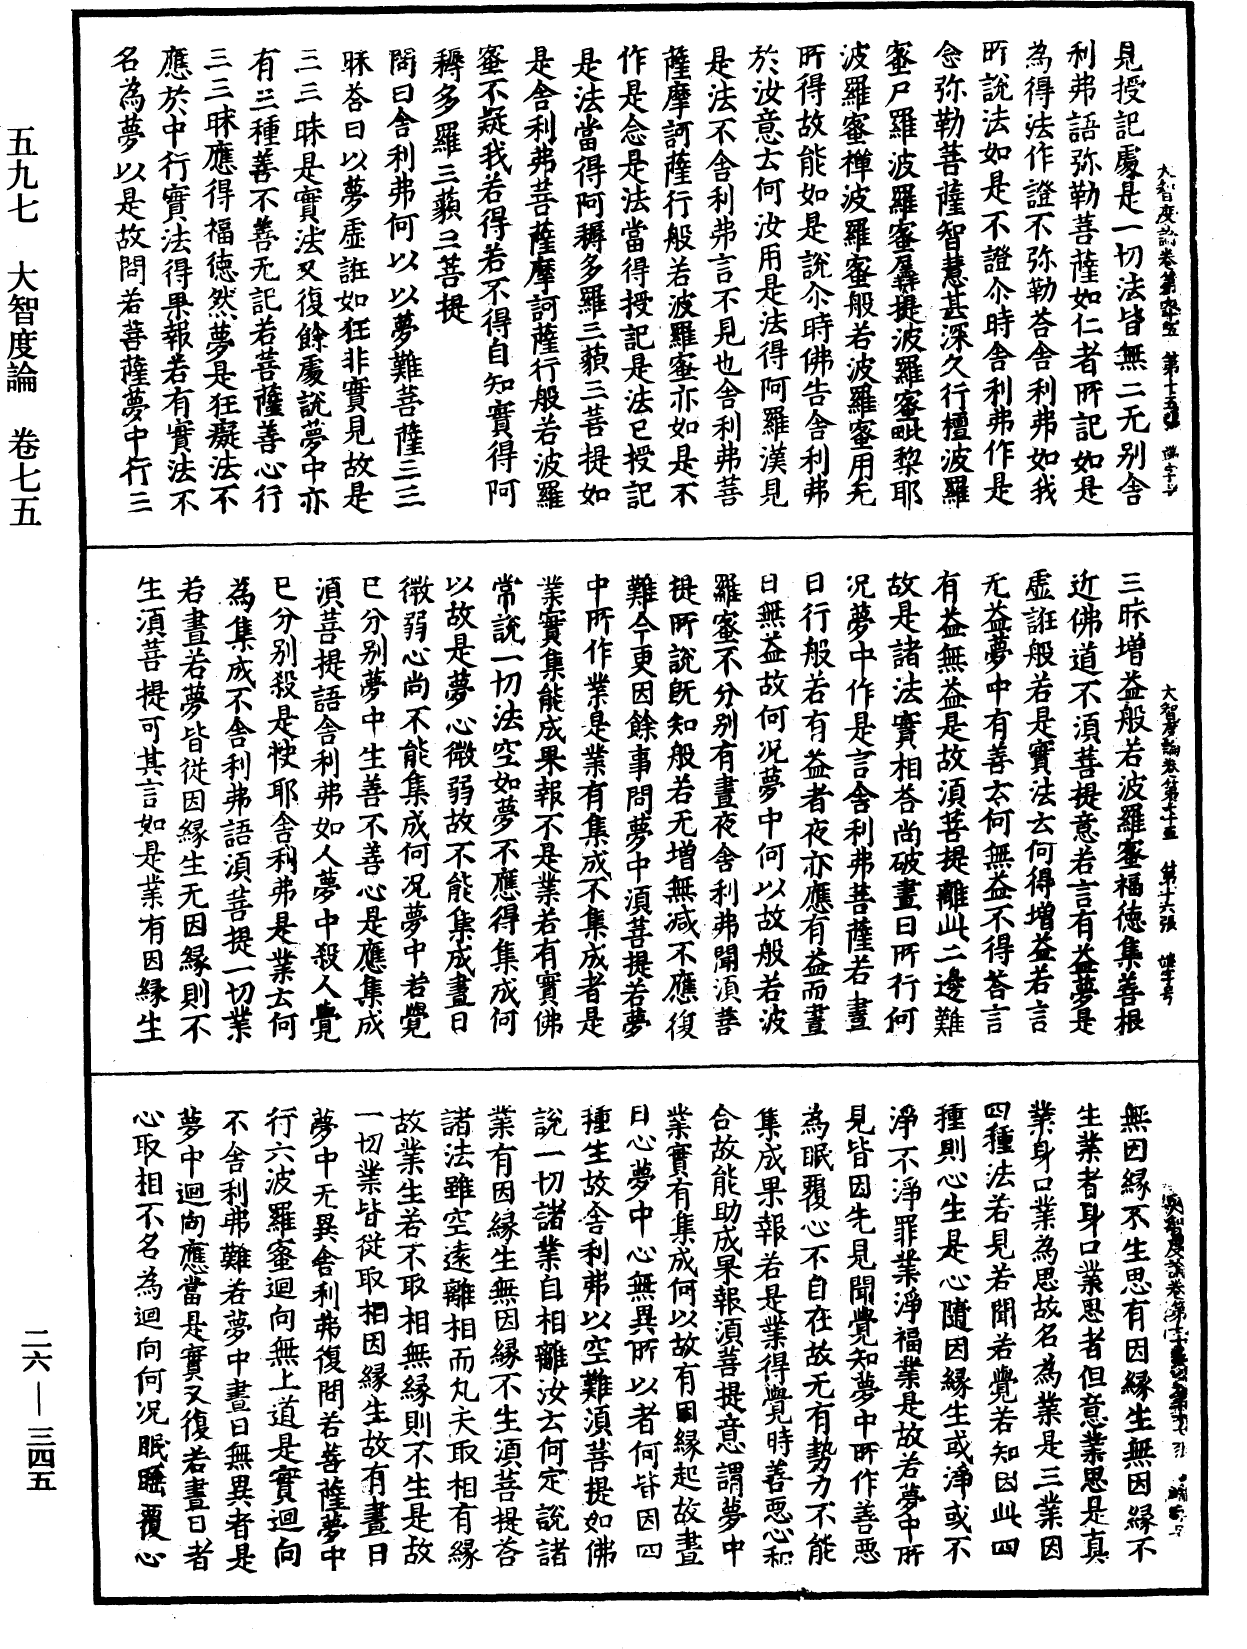 五九七　大智度論　卷七五
見授記處是一切法皆無二无别舍
利弗語弥勒菩薩如仁者所記如是
為得法作證不弥勒荅舍利弗如我
所說法如是不證尒時舍利弗作是
念弥勒菩薩智慧甚深久行檀波羅
蜜尸羅波羅蜜羼提波羅蜜毗黎耶
波羅蜜禪波羅蜜般若波羅蜜用无
所得故能如是說尒時佛告舍利弗
於汝意云何汝用是法得阿羅漢見
是法不舍利弗言不見也舍利弗菩
薩摩訶薩行般若波羅蜜亦如是不
作是念是法當得授記是法已授記
是法當得阿耨多羅三藐三菩提如
是舍利弗菩薩摩訶薩行般若波羅
蜜不疑我若得若不得自知實得阿
耨多羅三藐三菩提
問曰舍利弗何以以夢難菩薩三三
昧荅曰以夢虛誑如狂非實見故是
三三昧是實法又復餘處說夢中亦
有三種善不善无記若菩薩善心行
三三昧應得福德然夢是狂癡法不
應於中行實法得果報若有實法不
名為夢以是故問若菩薩夢中行三
三昧增益般若波羅蜜福德集善根
近佛道不須菩提意若言有益夢是
虛誑般若是實法云何得增益若言
无益夢中有善云何無益不得荅言
有益無益是故須菩提離此二邊難
故是諸法實相荅尚破晝日所行何
况夢中作是言舍利弗菩薩若晝
日行般若有益者夜亦應有益而晝
日無益故何况夢中何以故般若波
羅蜜不分别有晝夜舍利弗聞須菩
提所說旣知般若无增無減不應復
難今更因餘事問夢中須菩提若夢
中所作業是業有集成不集成者是
業實集能成果報不是業若有實佛
常說一切法空如夢不應得集成何
以故是夢心微弱故不能集成晝日
微弱心尚不能集成何况夢中若覺
已分别夢中生善不善心是應集成
須菩提語舍利弗如人夢中殺人覺
已分别殺是快耶舍利弗是業云何
為集成不舍利弗語須菩提一切業
若晝若夢皆從因緣生无因緣則不
生須菩提可其言如是業有因緣生
無因緣不生思有因緣生無因緣不
生業者身口業思者但意業思是真
業身口業為思故名為業是三業因
四種法若見若聞若覺若知因此四
種則心生是心隨因緣生或淨或不
淨不淨罪業淨福業是故若夢中所
見皆因先見聞覺知夢中所作善惡
為眠覆心不自在故无有勢力不能
集成果報若是業得覺時善惡心和
合故能助成果報須菩提意謂夢中
業實有集成何以故有因緣起故晝
日心夢中心無異所以者何皆因四
種生故舍利弗以空難須菩提如佛
說一切諸業自相離汝云何定說諸
業有因緣生無因緣不生須菩提荅
諸法雖空遠離相而凡夫取相有緣
故業生若不取相無緣則不生是故
一切業皆從取相因緣生故有晝日
夢中无異舍利弗復問若菩薩夢中
行六波羅蜜迴向無上道是實迴向
不舍利弗難若夢中晝日無異者是
夢中迴向應當是實又復若晝日者
心取相不名為迴向何况眠睡覆心
二六—三四五